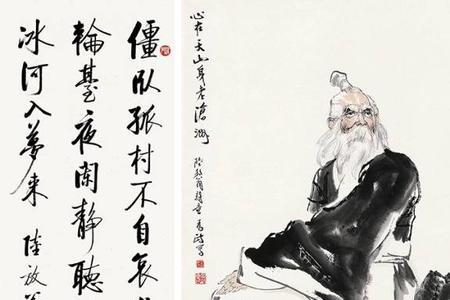 僵臥孤村不自哀
輪臺夜闌靜聽
冰河入夢來 陸放
心在天山身老滄洲
陸放翁詩意